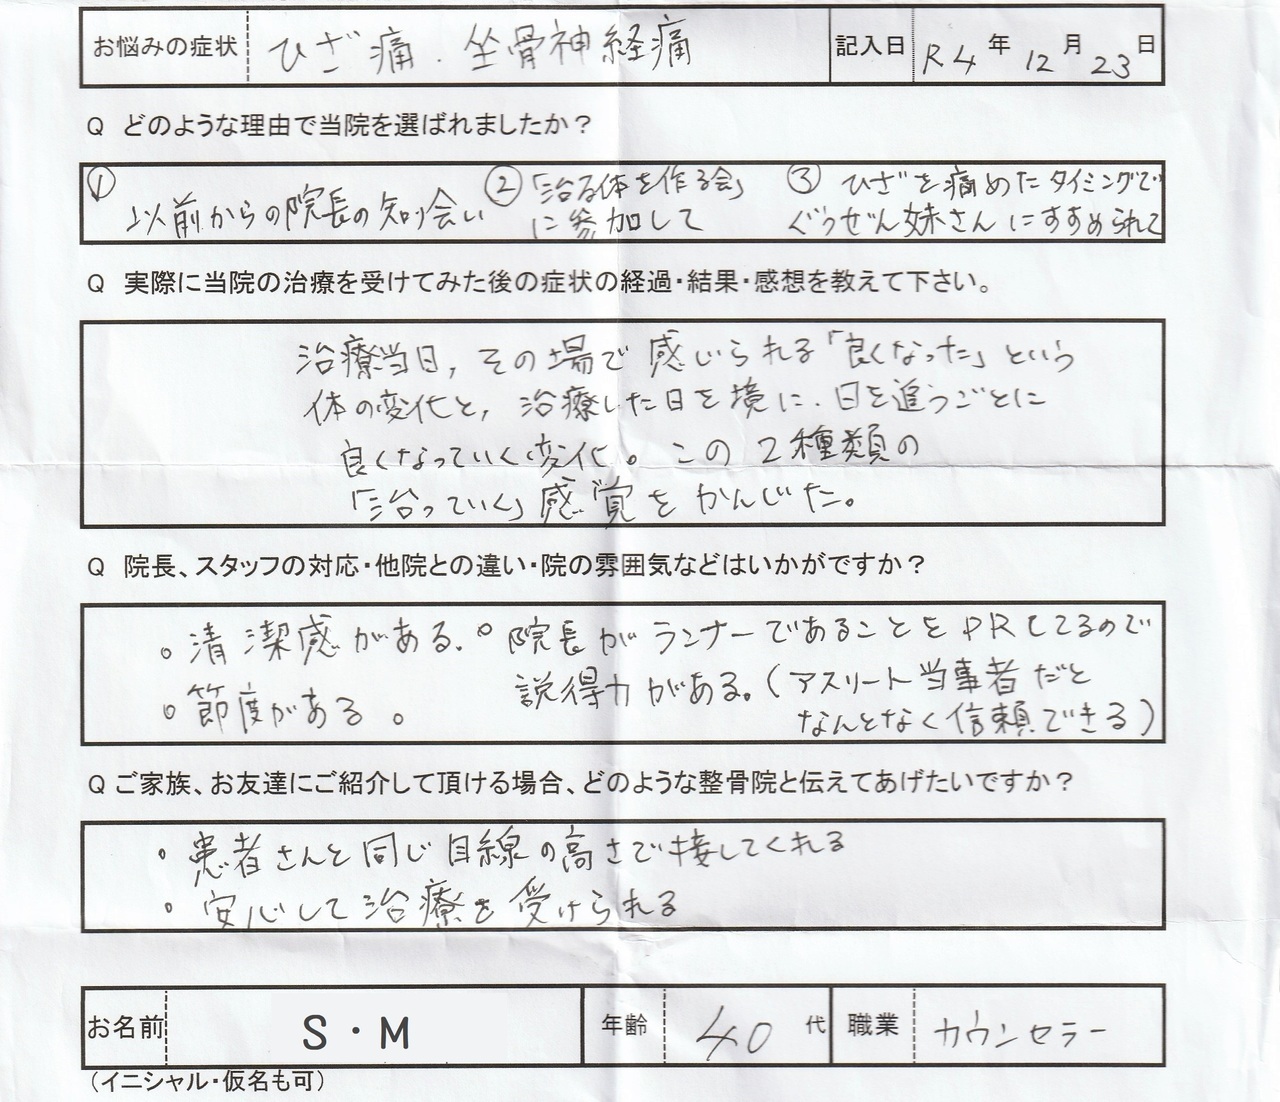 お悩みの症状 ひざ痛．坐骨神経痛 記入日 R4年12月23日
Q どのような理由で当院を選ばれましたか？
① 以前からの院長の知り会い
②「治る体を作る会」
に参加して
③ ひざを痛めたタイミングで
ぐうぜん妹さんにすすめられて
Q 実際に当院の治療を受けてみた後の症状の経過・結果・感想を教えて下さい。
治療当日，その場で感じられる「良くなった」という
体の変化と，治療した日を境に．日を追うごとに
良くなっていく変化。この2種類の
「治っていく」感覚をかんじた。
Q 院長、スタッフの対応・他院との違い・院の雰囲気などはいかがですか？
○ 清潔感がある．
○ 節度がある。
○ 院長がランナーであることをPRしてるので
説得力がある。（アスリート当事者だと
なんとなく信頼できる）
Q ご家族、お友達にご紹介して頂ける場合、どのような整骨院と伝えてあげたいですか？
・患者さんと同じ目線の高さで接してくれる
・安心して治療を受けられる
お名前 S・M 年齢 40代 職業 カウンセラー
（イニシャル・仮名も可）